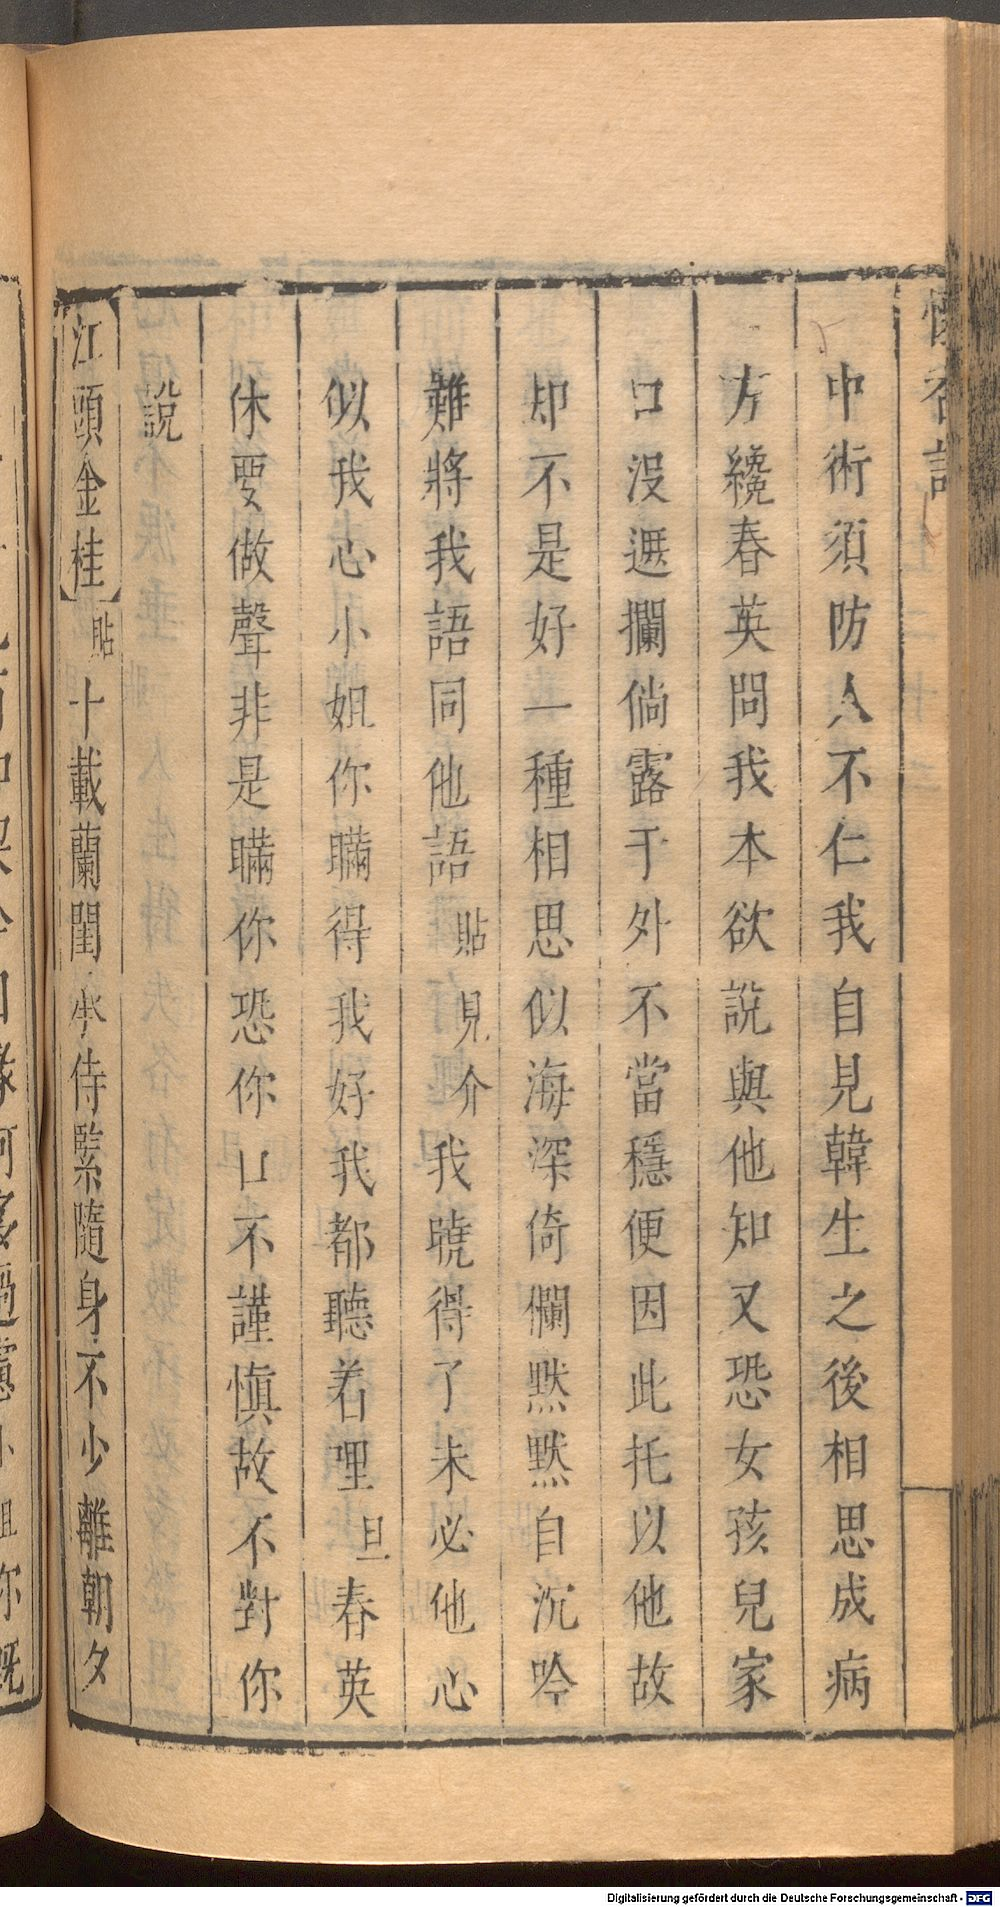 懷香記
中術須防人不仁我自見韓生之後相思成病
方纔春英問我本欲說與他知又恐女孩兒家
口沒遮攔倘露于外不當穩便因此托以他故
却不是好一種相思似海深倚欄默默自沉吟
難將我語同他語貼見介我曉得了未必他心
似我心小姐你瞞得我好我都聽着哩旦春英
休要做聲非是瞞你恐你口不謹慎故不對你
說
江頭金桂】貼十載蘭閨承侍緊隨身不少離朝夕
Digitalisierung gefördert durch die Deutsche Forschungsgemeinschaft - DFG